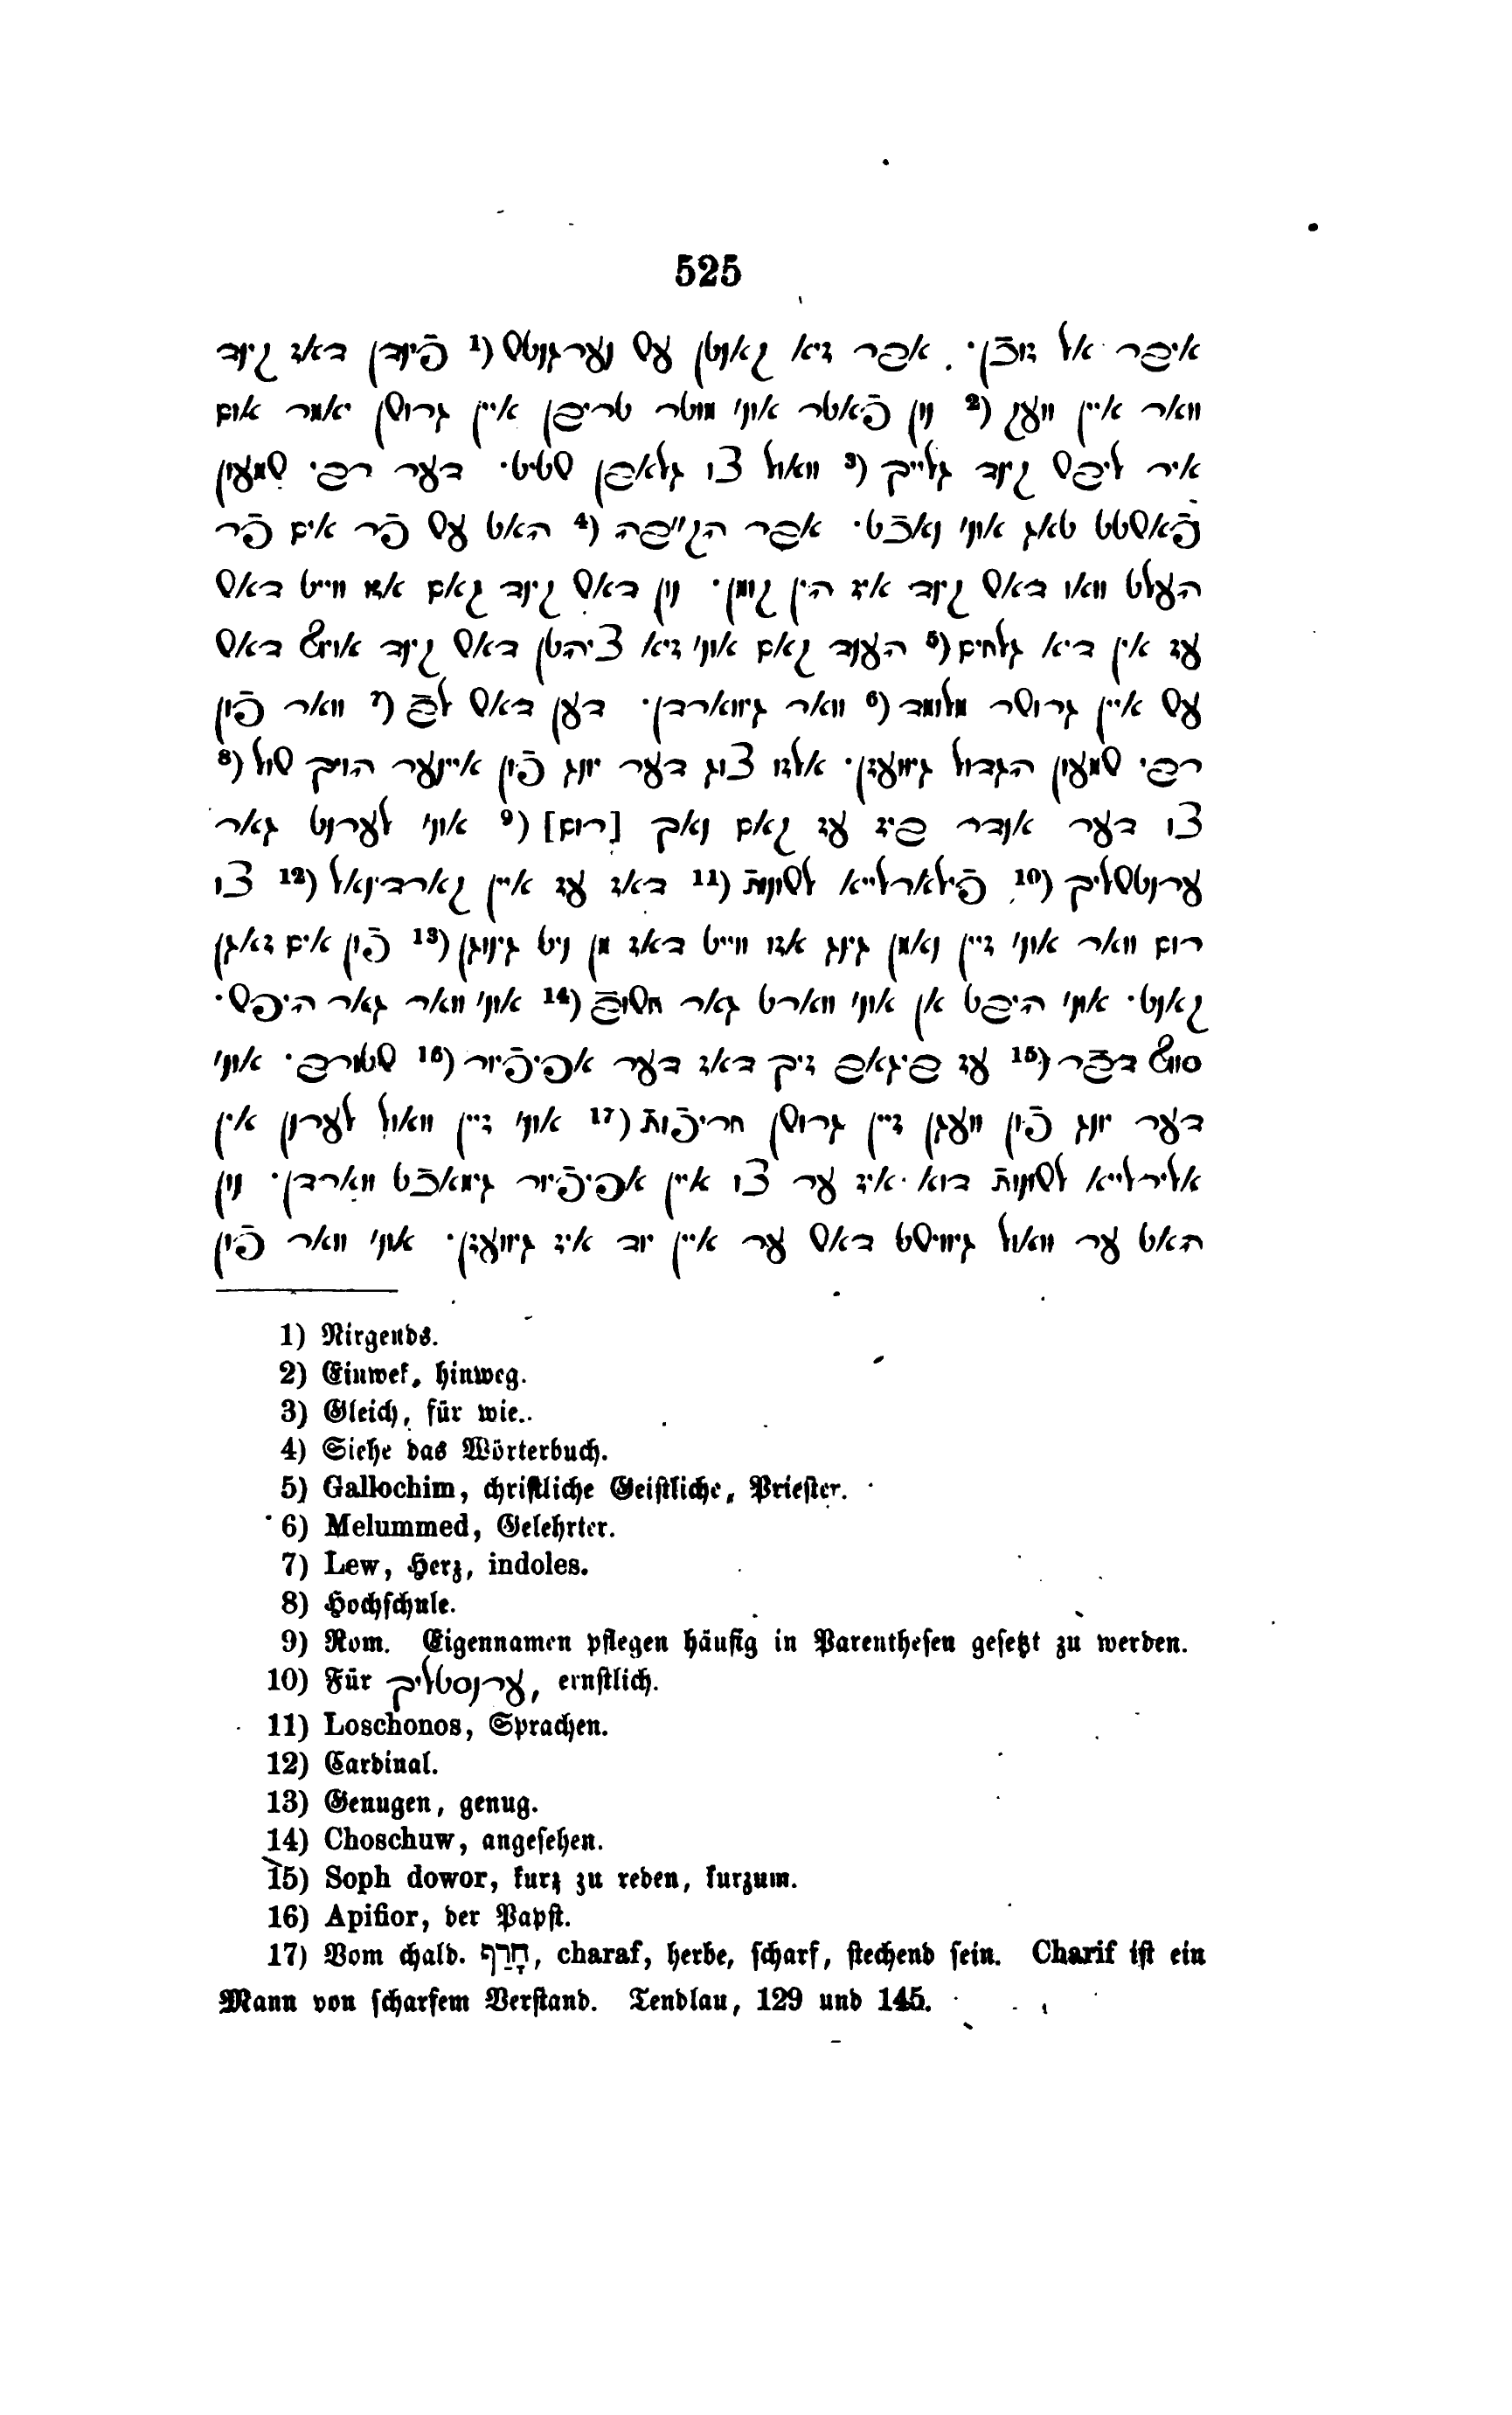 525
איבר אל זוכֿן. אבר זיא קאנטן עס נערגנטס (1 פֿינדן דאז קינד
וואר איין וועק (2 נון פֿאטר אונ' מוטר טריבן איין גרוסן יאמר אום
איר ליבס קינד גלייך (3 וואול צו גלאבן שטיט. דער רבי שמעון
פֿאסטט טאג אונ' נאכֿט. אבר הק״בה (4 האט עס פֿר אים פֿר
העלט וואו דאס קינד איז הין קומן. נון דאס קינד קאם אזו ווייט דאס
עז אין דיא גלחים (5 הענד קאם אונ' זיא ציהטן דאס קינד אויף דאס
עס איין גרוסר מלומד (6 וואר גיווארדן. דען דאס לבֿ (7 וואר פֿון
רבי שמעון הגדול גיוועזן. אלזו צוג דער יונג פֿון איינער הויך שול (8
צו דער אנדר ביז עז קאם נאך [רום] (9 אונ' לערנט גאר
ערנטשליך (10 פֿילארלייא לשונות (11 דאז עז איין קארדינאל (12 צו
רום וואר אונ' זיין נאמן גינג אזו ווייט דאז מן ניט גינוגן (13 פֿון אים זאגן
קאנט. אונ' היבט אן אונ' ווארט גאר חשובֿ (14 אונ' וואר גאר היפש.
סוף דבֿר (15 עז ביגאב זיך דאז דער אפיפֿיור (16 שטורב. אונ'
דער יונג פֿון וועגן זיין גרוסן חריפֿות (17 אונ' זיין וואול לערנן אין
אלירלייא לשונות דוא איז ער צו איין אפיפֿיור גימאכֿט ווארדן. נון
האט ער וואול גיוויסט דאס ער איין יוד איז גיוועזן. אונ' וואר פֿון
1) Nirgends.
2) Einwek, hinweg.
3) Gleich, für wie.
4) Siehe das Wörterbuch.
5) Gallochim, christliche Geistliche, Priester.
6) Melummed, Gelehrter.
7) Lew, Herz, indoles.
8) Hochschule.
9) Rom. Eigennamen pflegen häufig in Parenthesen gesetzt zu werden.
10) Für ערנסטליך, ernstlich.
11) Loschonos, Sprachen.
12) Cardinal.
13) Genugen, genug.
14) Choschuw, angesehen.
15) Soph dowor, kurz zu reden, kurzum.
16) Apifior, der Papst.
17) Vom chald. חָרַף, charaf, herbe, scharf, stechend sein. Charif ist ein
Mann von scharfem Verstand. Tendlau, 129 und 145.